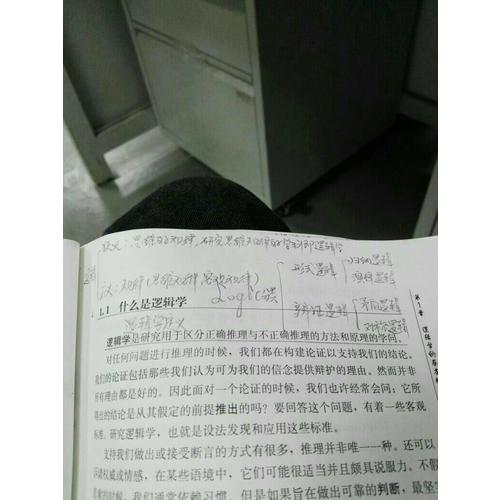 狭义：思维的规律，研究思维规律的学科即逻辑学
广义：规律（思维规律 客观规律）
Logic分类
形式逻辑
归纳逻辑
演绎逻辑
辩证逻辑
矛盾逻辑
对称逻辑
1.1 什么是逻辑学
逻辑学定义
逻辑学是研究用于区分正确推理与不正确推理的方法和原理的学问。
对任何问题进行推理的时候，我们都在构建论证以支持我们的结论。
我们的论证包括那些我们认为可为我们的信念提供辩护的理由。然而并非
所有理由都是好的。因此面对一个论证的时候，我们也许经常会问：它所
得出的结论是从其假定的前提推出的吗？要回答这个问题，有着一些客观
标准。研究逻辑学，也就是设法发现和应用这些标准。
支持我们做出或接受断言的方式有很多，推理并非唯一一种。还可以
诉诸权威或情感，在某些语境中，它们可能很适当并且颇具说服力。不假
思索的时候，我们通常依赖习惯。但是如果旨在做出可靠的判断，最坚
第1章 逻辑学的基本